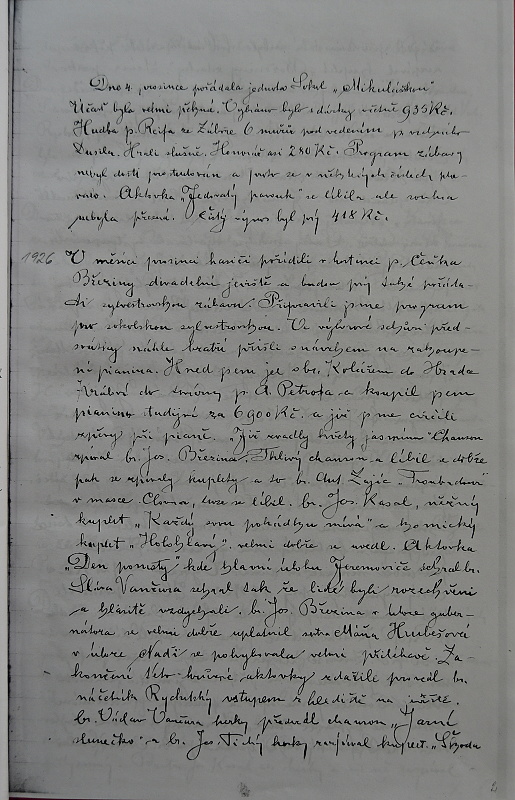 Dne 4. prosince pořádala jednota Sokol „Mikulášskou“
Účast byla velmi pěkná. Vybráno bylo i dárky včetně 935 Kč.
Hudba p. Rejfa ze Zábře 6 mužů pod vedením p.
Dusila. Hráli slušně. Honorář asi 280 Kč. Program zábavy
nebyl dosti prostudován a proto se v některých číslech
Aktovka „Jedovatý pavouk“ se líbila ale souhra
nebyla přesná. Čistý výnos byl prý 418 Kč.
1926 V měsíci prosinci hasiči pořídili v hostinci p. Čeňka
Březiny divadelní jeviště a budou prý též pořáda-
ti sylvestrovskou zábavu. Připravili jsme program
pro sokolskou sylvestrovskou. Ve výborové schůzi před
svátky náhle bratři přišli s návrhem na zakoupe-
ní pianina. Hned jsem jel s br. Kolářem do Hradce
Králové do továrny p. A. Petrofa a koupil jsem
pianino studijní za 6900 Kč. a již jsme cvičili
zpěvy při pianě. „Již zvadly květy jasmínu“ Chanson
zpíval br. Jos. Březina. Tklivý chanson a líbil se dobře
pak se zpívaly kuplety a to br. Ant. Zajíc „Troubadour“
v masce Clowna, dosti se líbil. br. Jos. Kasal, něžný
kuplet „Každý svou pohádku mívá“ a komický
kuplet „Holohlavý“. velmi dobře se uvedl. Aktovka
„Den pomsty“ kde hlavní úlohu Jeremoviče sehrál br.
Sláva Vančura sehrál tak že lidé byli rozechvěni
a hlasitě vzdychali. br. Jos. Březina v úloze guber-
nátora se velmi dobře uplatnil sestra Máňa Hubešová
v úloze Nadi se pohybovala velmi přiléhavě. Za-
končení této aktovky zdařile provedl br.
náčelník Rychetský vstupem z hlediště na jeviště.
br. Václav Vančura hezky přednesl chanson „Jarní
slunečko“ a br. Jos. Tichý hezky zazpíval kuplet. „Škoda